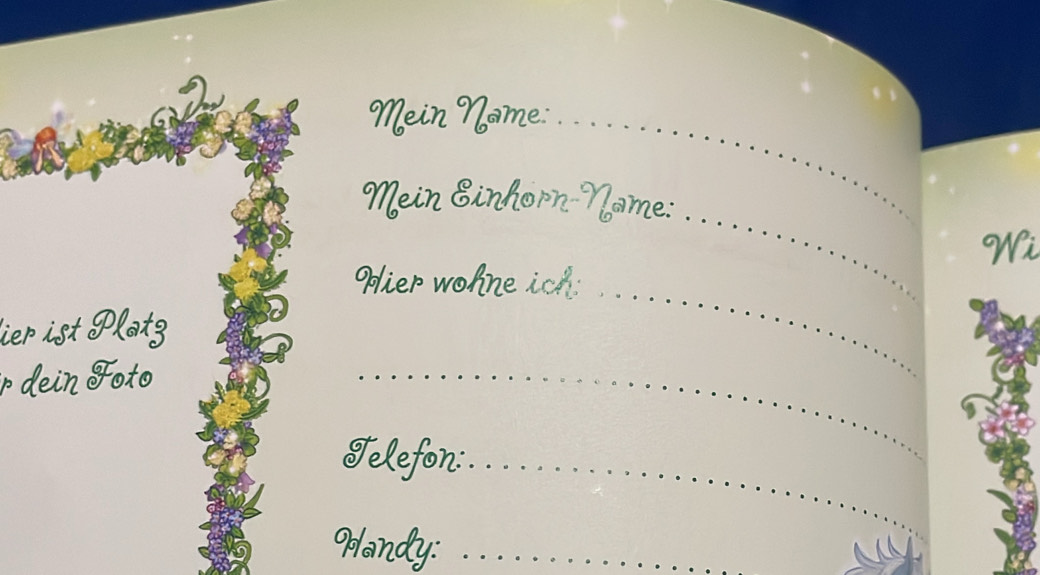 Mein Name:
Mein Einhorn-Name:
Hier wohne ich:
ist Platz
dein Foto
Telefon:
Handy: